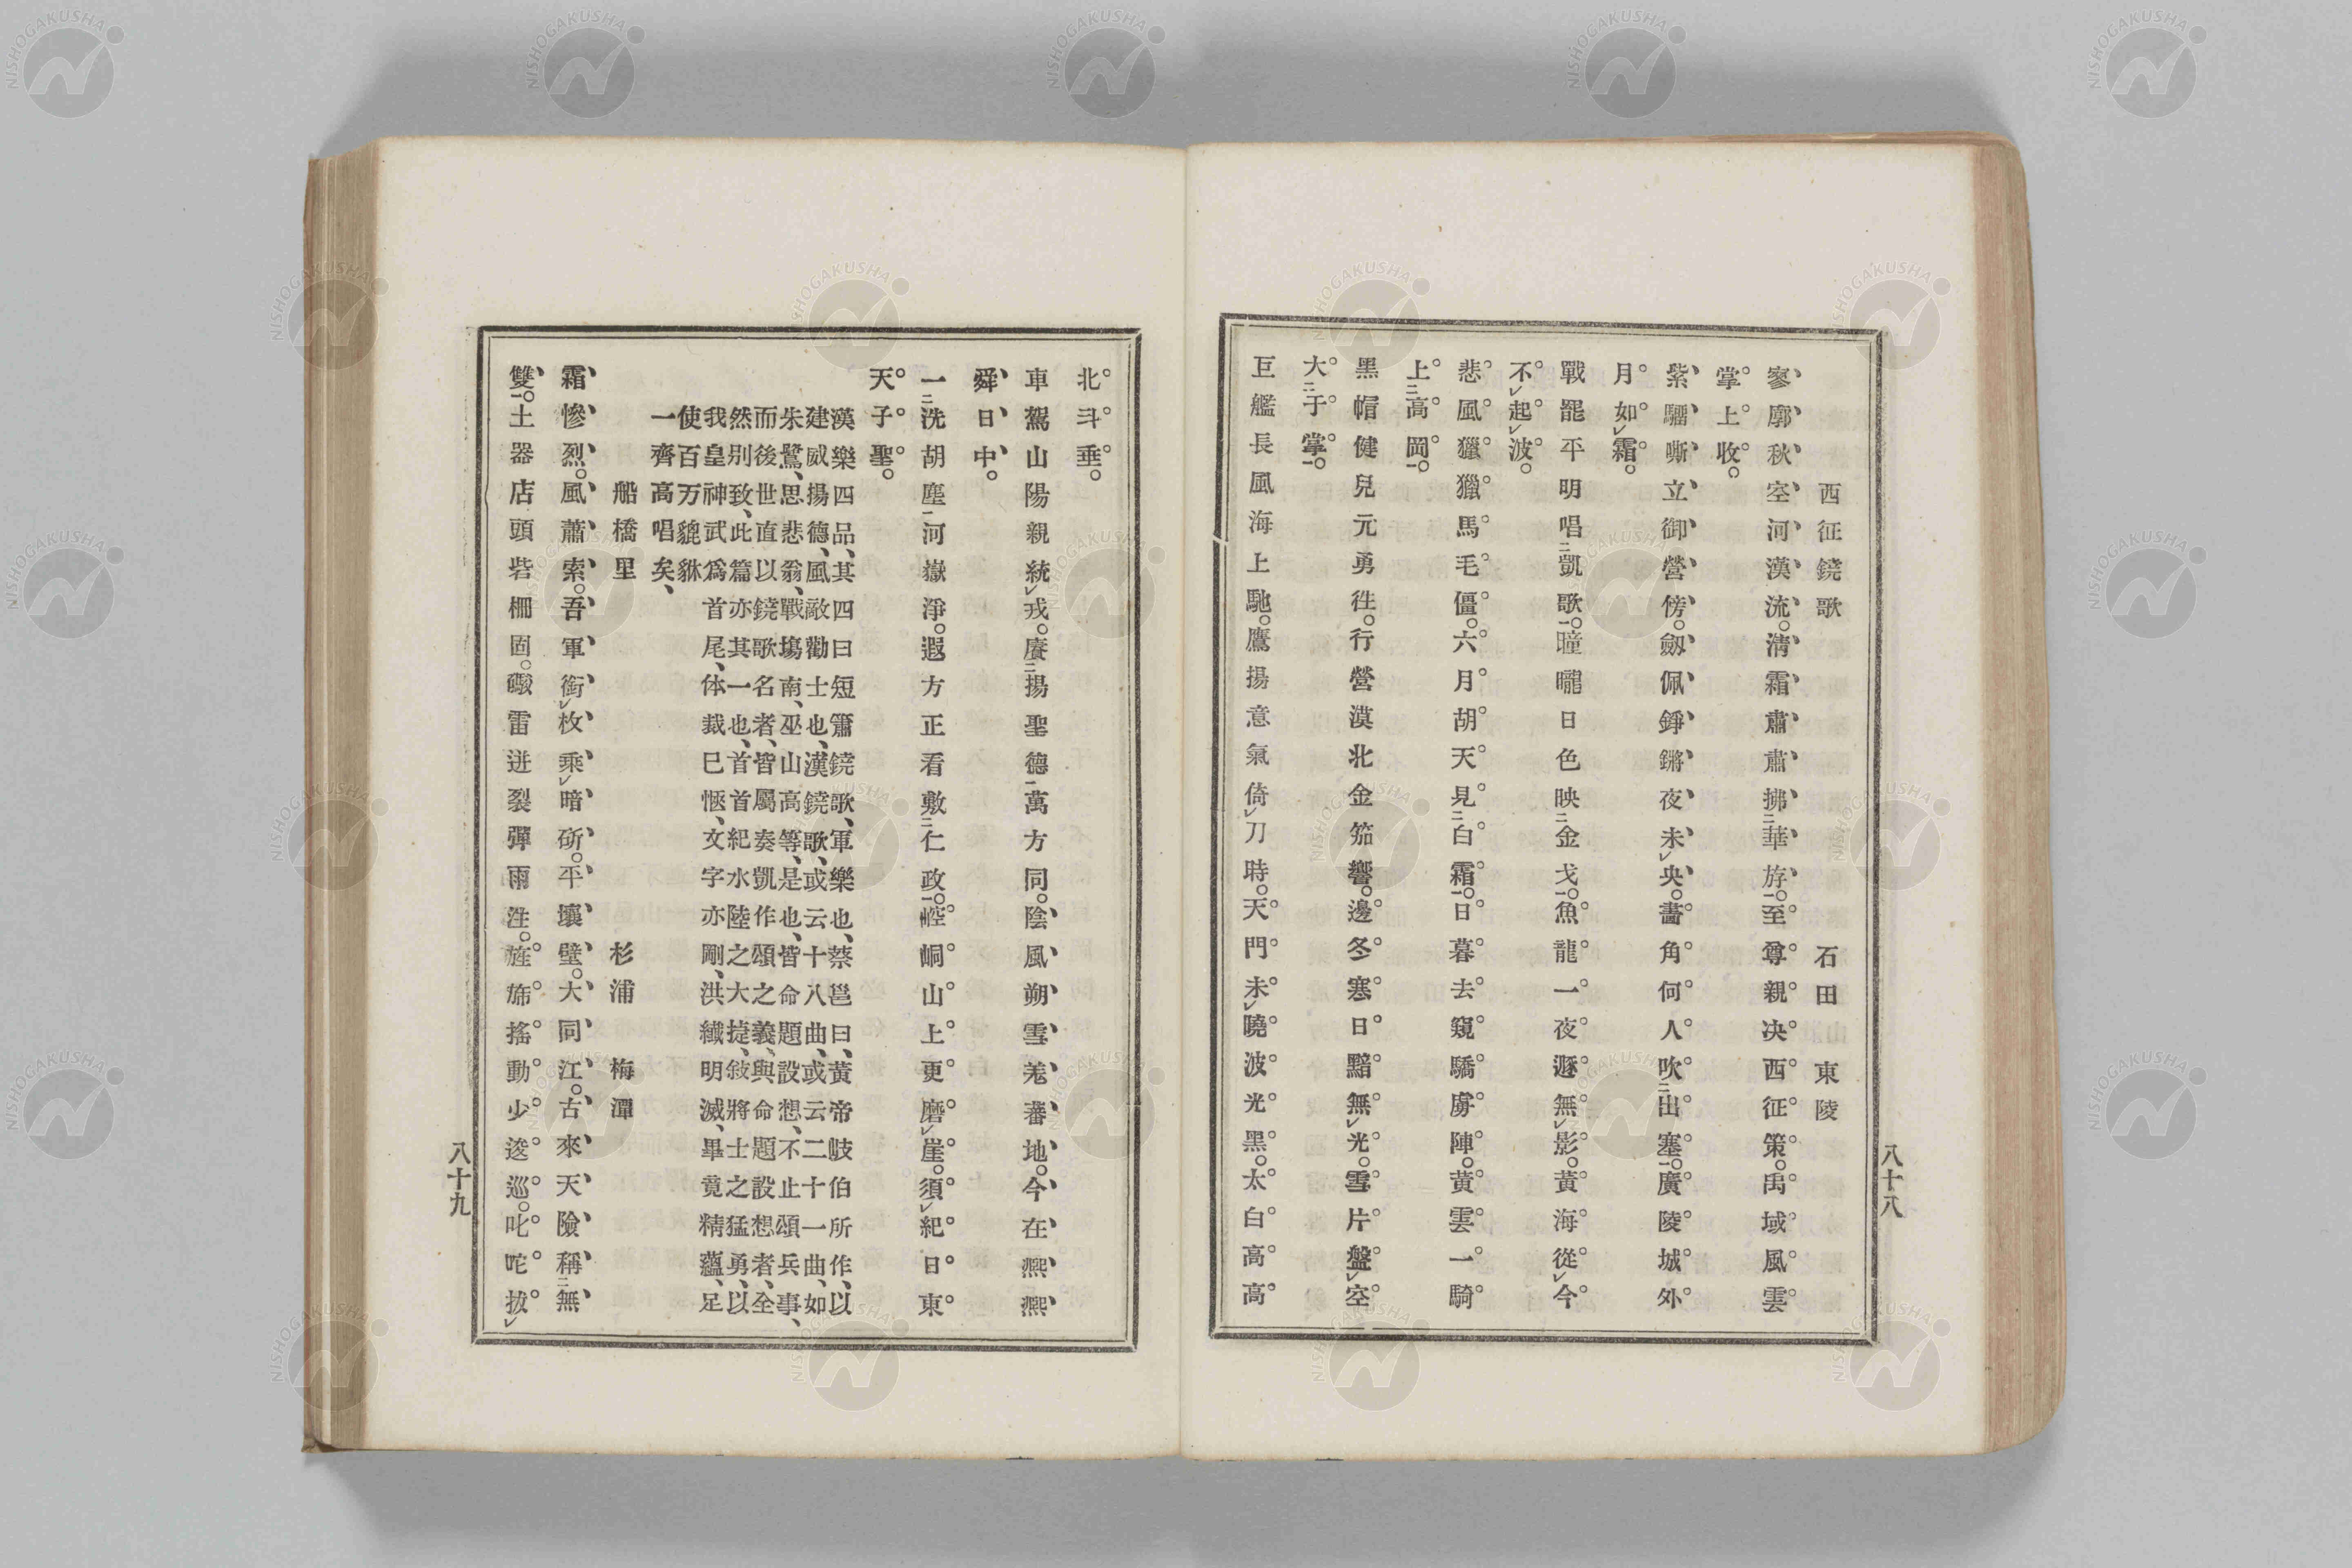 西征鐃歌 石田東陵
寥廓秋空河漢流。清霜肅肅拂二華斿一。至尊親決西征策。禹域風雲
掌上收。
紫騮嘶立御營傍。劒佩錚鏘夜未レ央。畵角何人吹二出塞一。廣陵城外
月如レ霜。
戰罷平明唱二凱歌一。曈曨日色映二金戈一。魚龍一夜遯無レ影。黃海從レ今
不レ起レ波。
悲風獵獵馬毛僵。六月胡天見二白霜一。日暮去窺驕虜陣。黃雲一騎
上二高岡一。
黑帽健兒元勇徃。行營漠北金笳響。邊冬寒日黯無レ光。雪片盤レ空
大二于掌一。
巨艦長風海上馳。鷹揚意氣倚レ刀時。天門未レ曉波光黑。太白高高
八十八
北斗垂。
車駕山陽親統レ戎。賡二揚聖德一萬方同。陰風朔雪羗蕃地。今在凞凞
舜日中。
一二洗胡塵一河嶽淨。遐方正看敷二仁政一。崆峒山上更磨レ崖。須レ紀日東
天子聖。
漢樂四品、其四曰短簫鐃歌、軍樂也、蔡邕曰、黃帝歧伯所作、以
建威揚德、風敵勸士也、漢鐃歌、或云十八曲、或云二十一曲、如
朱鷺、思悲翁、戰塲南、巫山高等、是也、皆命題設想、不止頌兵事、
而後世直以鐃歌名者、皆屬奏凱作頌之義、與命題設想者、全
然別致、此篇亦其一也、首首紀水陸之大捷、敍將士之猛勇、以
我皇神武爲首尾、体裁已愜、文字亦剛、洪纖明滅、畢竟精蘊、足
使百万貔貅
一齊高唱矣、
船橋里 杉浦梅潭
霜慘烈。風蕭索。吾軍銜レ枚乘レ暗斫。平壤壁。大同江。古來天險稱二無
雙一。土器店頭砦柵固。礮雷迸裂彈雨注。旌旆搖動少逡巡。叱咤拔レ
八十九